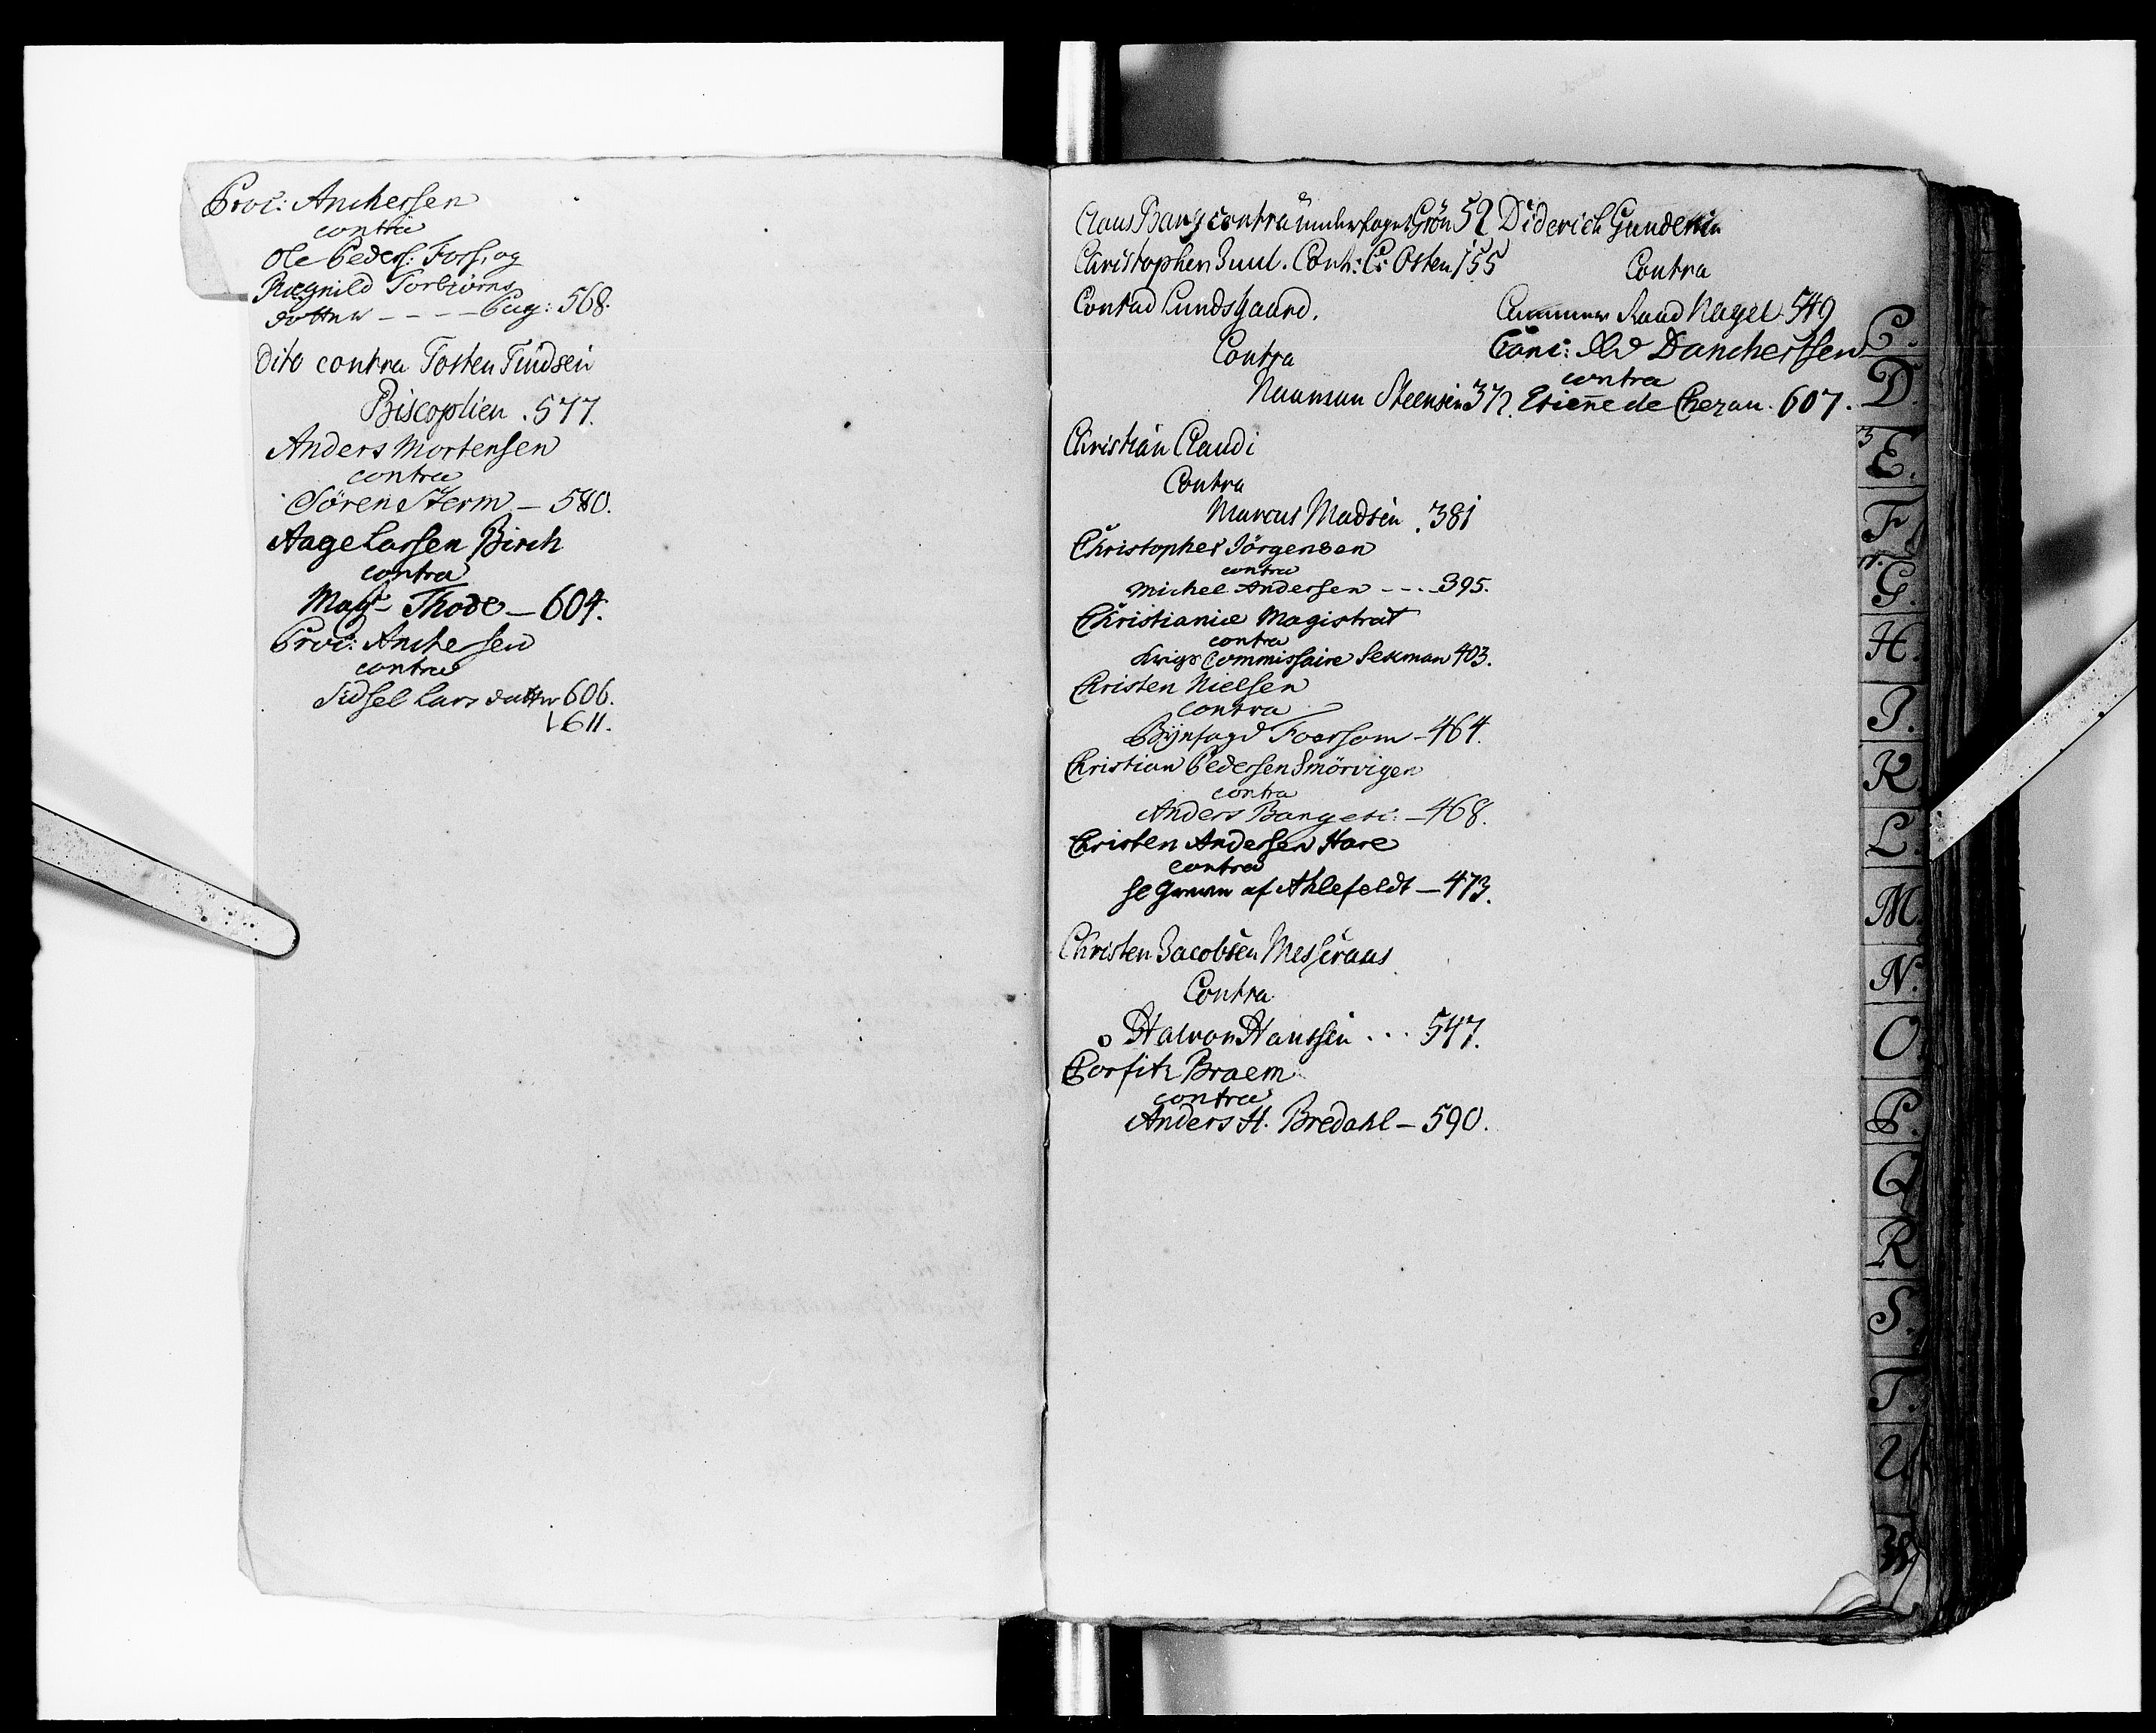 Proc: Anchersen
contra
Ole Peders: Foss, og
Ragnild Torbiörns
dotter - - - - Pag: 568.
Dito contra Tosten Tindsen
Biscoplien . 577.
Anders Mortensen
contra
Sören Sterm - 580.
Aage Lassen Birch
contra
Magr Thode - 604.
Proc: Anchersen
contra
Sidsel Lars datter 606.
611.
Claus Bang contra underfoget Grön 52
Christopher Juul. Contr: C: Osten 155
Conrad Lundsgaard.
Contra
Naaman Steensen 372.
Christian Claudi
Contra
Marcus Madsen . 381
Christopher Jörgensen
contra
Michel Andersen - - - 395.
Christianiæ Magistrat
contra
Krigs Commissaire Sekman 403.
Christen Nielsen
contra
Byefogd Foersom - 464.
Christian Pedersen Smörvigen
contra
Anders Bang etc: - 468.
Christen Andersen Hare
contra
af Ahlefeldt - 473.
Christen Jacobsen
Contra
Halvor Hansen . . . 547.
Corfitz Braem
contra
Anders H. Bredahl - 590.
Diderich Gundersen
Contra
Cammer Raad Nagel 549
Canc: Rd Danchertsen
contra
Etieñe de Chezau. 607.
C.
D
E.
F
G.
H.
I.
K
L.
M.
N.
O.
P.
Q
R
S.
T.
U